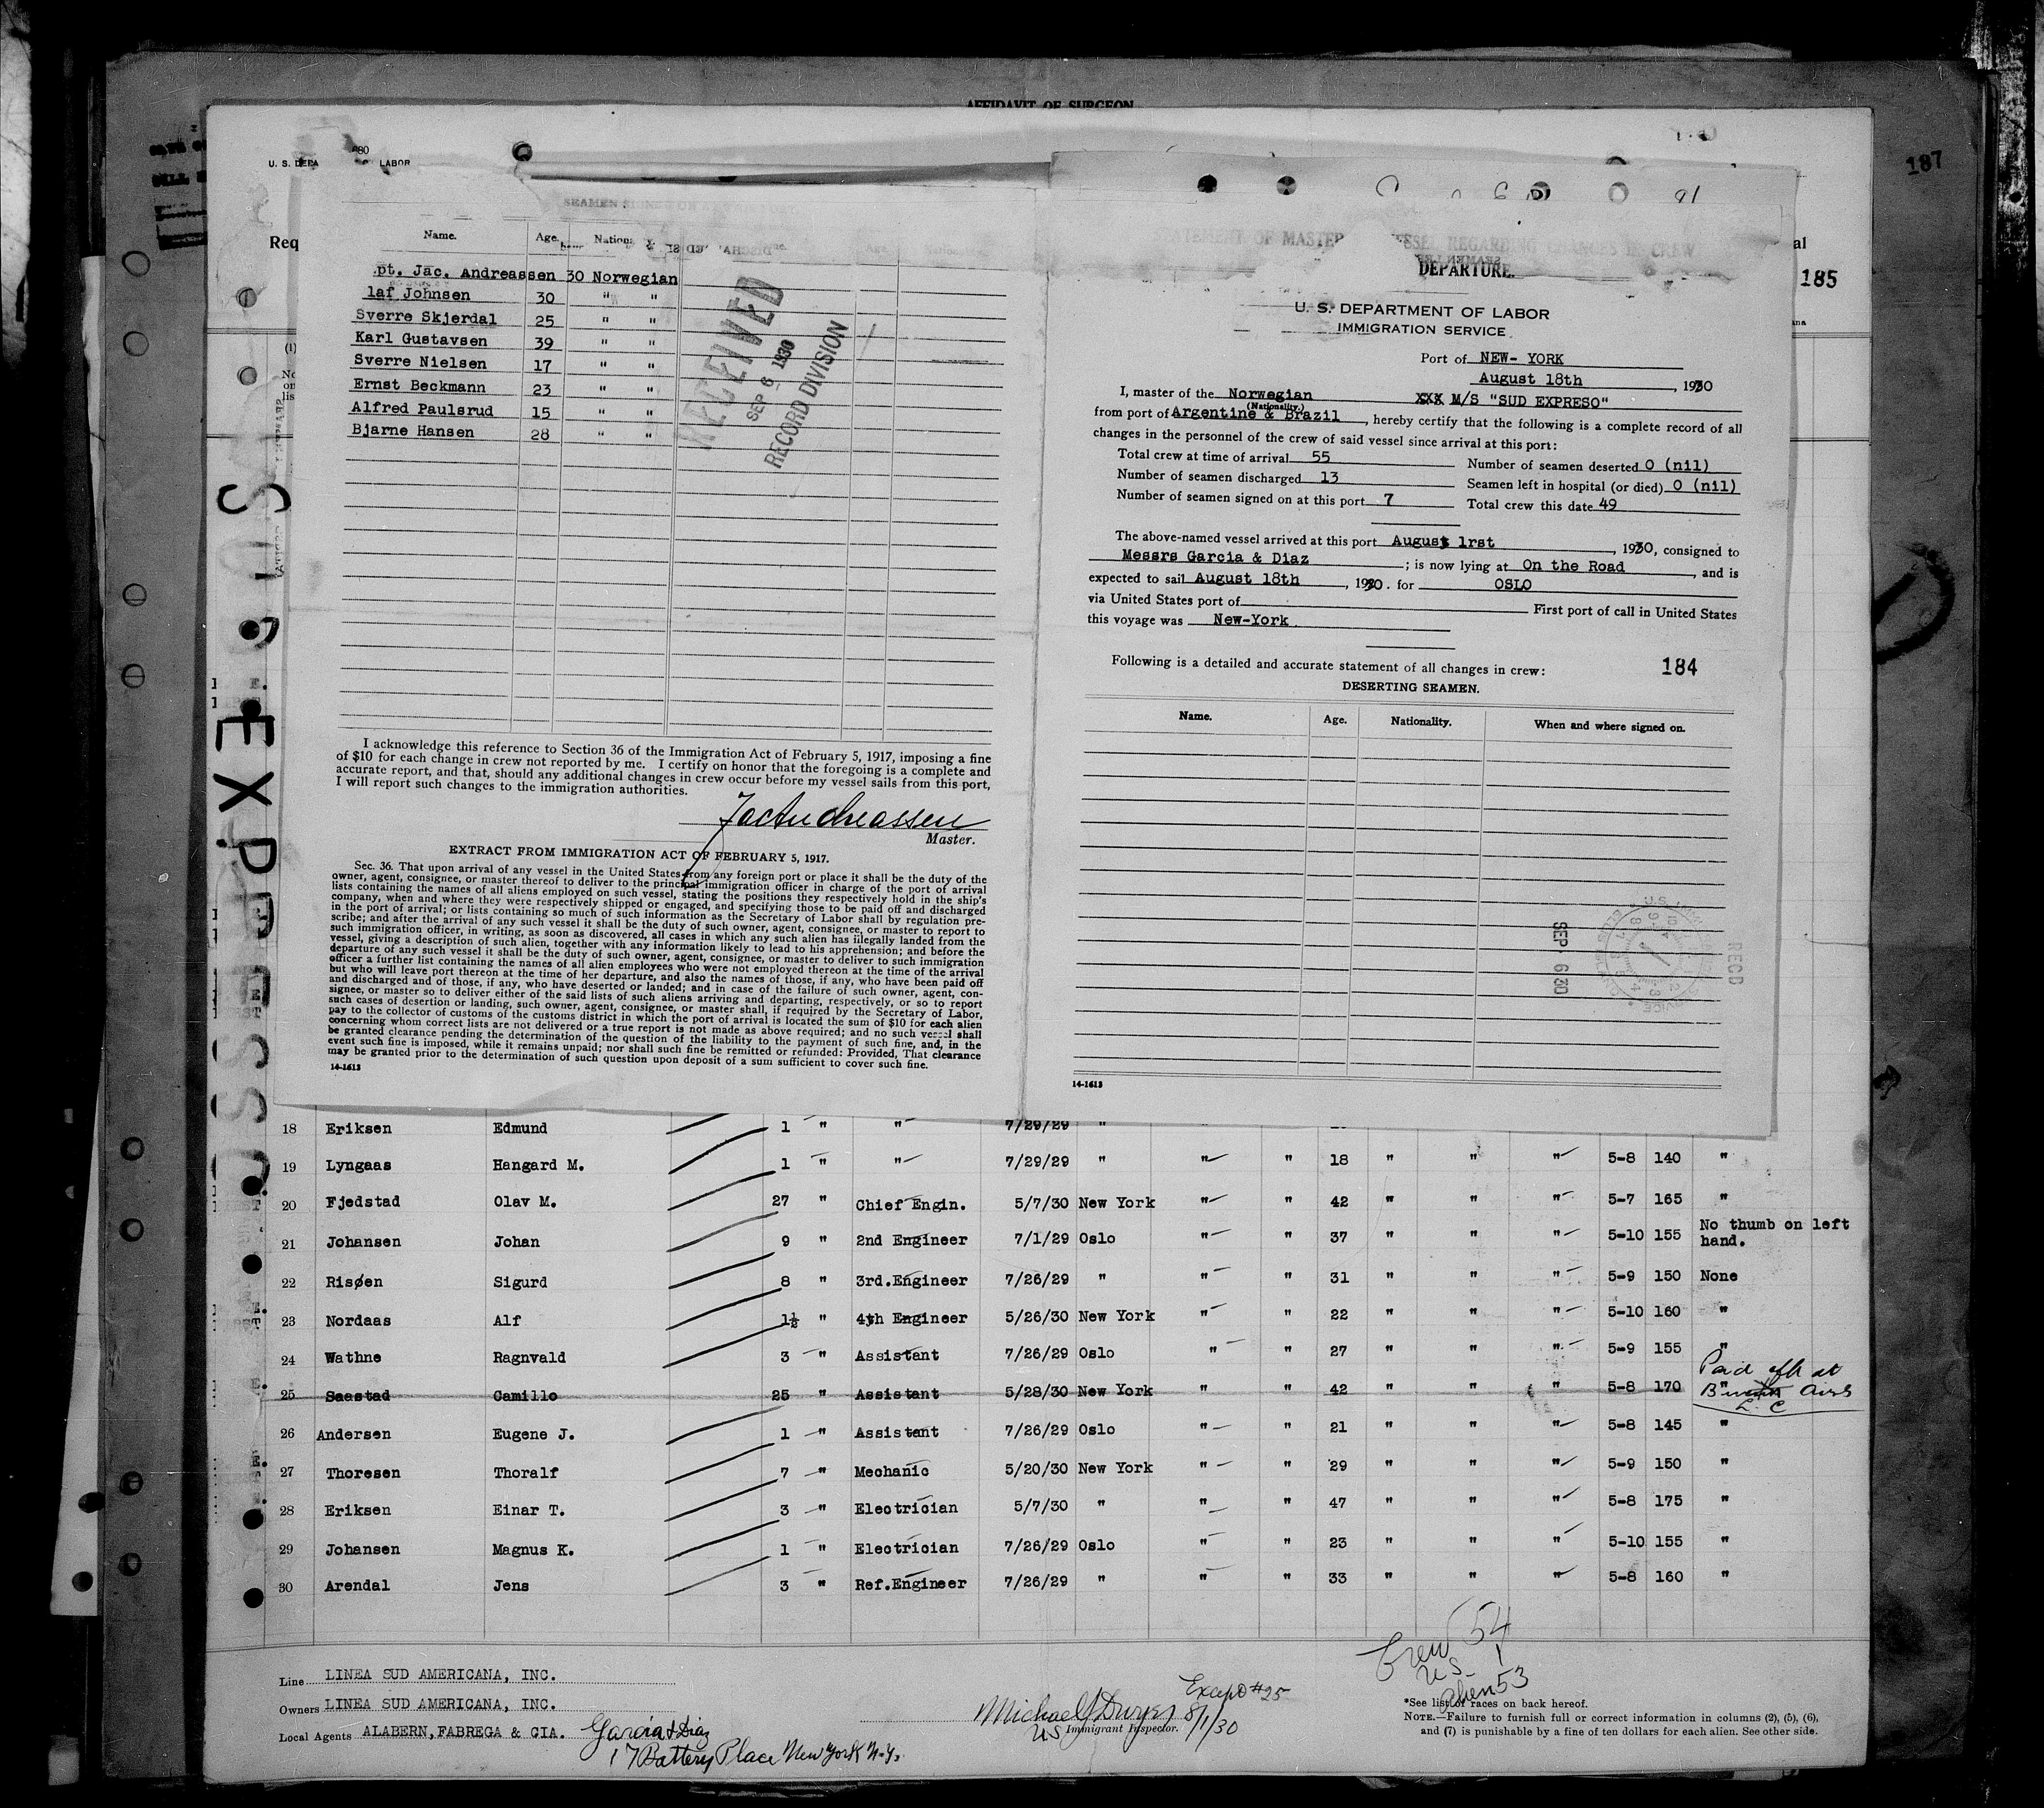 AFFIDAVIT OF SURGEON
187
680
U. S. DEPA LABOR
Req
al
185
91
SEAMEN SIGNED ON
Name. Age. Nation
pt. Jac. Andreassen 30 Norwegian
laf Johnsen 30 " "
Sverre Skjerdal 25 " "
Karl Gustavsen 39 " "
Sverre Nielsen 17 " "
Ernst Beckmann 23 " "
Alfred Paulsrud 15 " "
Bjarne Hansen 28 " "
RECEIVED
SEP 6 1930
RECORD DIVISION
I acknowledge this reference to Section 36 of the Immigration Act of February 5, 1917, imposing a fine
of $10 for each change in crew not reported by me. I certify on honor that the foregoing is a complete and
accurate report, and that, should any additional changes in crew occur before my vessel sails from this port,
I will report such changes to the immigration authorities.
Jac Andreassen
Master.
EXTRACT FROM IMMIGRATION ACT OF FEBRUARY 5, 1917.
Sec. 36. That upon arrival of any vessel in the United States from any foreign port or place it shall be the duty of the
owner, agent, consignee, or master thereof to deliver to the principal immigration officer in charge of the port of arrival
lists containing the names of all aliens employed on such vessel, stating the positions they respectively hold in the ship's
company, when and where they were respectively shipped or engaged, and specifying those to be paid off and discharged
in the port of arrival; or lists containing so much of such information as the Secretary of Labor shall by regulation pre-
scribe; and after the arrival of any such vessel it shall be the duty of such owner, agent, consignee, or master to report to
such immigration officer, in writing, as soon as discovered, all cases in which any such alien has illegally landed from the
vessel, giving a description of such alien, together with any information likely to lead to his apprehension; and before the
departure of any such vessel it shall be the duty of such owner, agent, consignee, or master to deliver to such immigration
officer a further list containing the names of all alien employees who were not employed thereon at the time of the arrival
but who will leave port thereon at the time of her departure, and also the names of those, if any, who have been paid off
and discharged and of those, if any, who have deserted or landed; and in case of the failure of such owner, agent, con-
signee, or master so to deliver either of the said lists of such aliens arriving and departing, respectively, or so to report
such cases of desertion or landing, such owner, agent, consignee, or master shall, if required by the Secretary of Labor,
pay to the collector of customs of the customs district in which the port of arrival is located the sum of $10 for each alien
concerning whom correct lists are not delivered or a true report is not made as above required; and no such vessel shall
be granted clearance pending the determination of the question of the liability to the payment of such fine, and, in the
event such fine is imposed, while it remains unpaid; nor shall such fine be remitted or refunded: Provided, That clearance
may be granted prior to the determination of such question upon deposit of a sum sufficient to cover such fine.
14-1613
STATEMENT OF MASTER VESSEL REGARDING CHANGES IN CREW
DEPARTURE.
U. S. DEPARTMENT OF LABOR
IMMIGRATION SERVICE
Port of NEW- YORK
August 18th, 1930
I, master of the Norwegian XXX M/S "SUD EXPRESO"
(Nationality.)
from port of Argentine & Brazil, hereby certify that the following is a complete record of all
changes in the personnel of the crew of said vessel since arrival at this port:
Total crew at time of arrival 55 Number of seamen deserted 0 (nil)
Number of seamen discharged 13 Seamen left in hospital (or died) 0 (nil)
Number of seamen signed on at this port 7 Total crew this date 49
The above-named vessel arrived at this port August 1rst, 1930, consigned to
Messrs Garcia & Diaz; is now lying at On the Road, and is
expected to sail August 18th, 1930. for OSLO
via United States port of First port of call in United States
this voyage was New-York
Following is a detailed and accurate statement of all changes in crew: 184
DESERTING SEAMEN.
Name. Age. Nationality. When and where signed on.
SEP 6 30
RECD
14-1613
18 Eriksen Edmund 1 " " 7/29/29 "
19 Lyngaas Hangard M. 1 " " 7/29/29 " " " 18 " " " 5-8 140 "
20 Fjedstad Olav M. 27 " Chief Engin. 5/7/30 New York " " 42 " " " 5-7 165 "
21 Johansen Johan 9 " 2nd Engineer 7/1/29 Oslo " " 37 " " " 5-10 155 No thumb on left hand.
22 Risøen Sigurd 8 " 3rd.Engineer 7/26/29 " " " 31 " " " 5-9 150 None
23 Nordaas Alf 1½ " 4th Engineer 5/26/30 New York " " 22 " " " 5-10 160 "
24 Wathne Ragnvald 3 " Assistant 7/26/29 Oslo " " 27 " " " 5-9 155 "
25 Saastad Camillo 25 " Assistant 5/28/30 New York " " 42 " " " 5-8 170 Paid off at Buenos Aires L. C
26 Andersen Eugene J. 1 " Assistant 7/26/29 Oslo " " 21 " " " 5-8 145 "
27 Thoresen Thoralf 7 " Mechanic 5/20/30 New York " " 29 " " " 5-9 150 "
28 Eriksen Einar T. 3 " Electrician 5/7/30 " " " 47 " " " 5-8 175 "
29 Johansen Magnus K. 1 " Electrician 7/26/29 Oslo " " 23 " " " 5-10 155 "
30 Arendal Jens 3 " Ref.Engineer 7/26/29 " " " 33 " " " 5-8 160 "
Crew 54
US 1
alien 53
Line LINEA SUD AMERICANA, INC.
Owners LINEA SUD AMERICANA, INC.
Local Agents ALABERN, FABREGA & CIA. Garcia & Diaz
17 Battery Place New York N.Y.
Except #25
Michael J Dwyer 8/1/30
US Immigrant Inspector.
*See list of races on back hereof.
NOTE.—Failure to furnish full or correct information in columns (2), (5), (6),
and (7) is punishable by a fine of ten dollars for each alien. See other side.